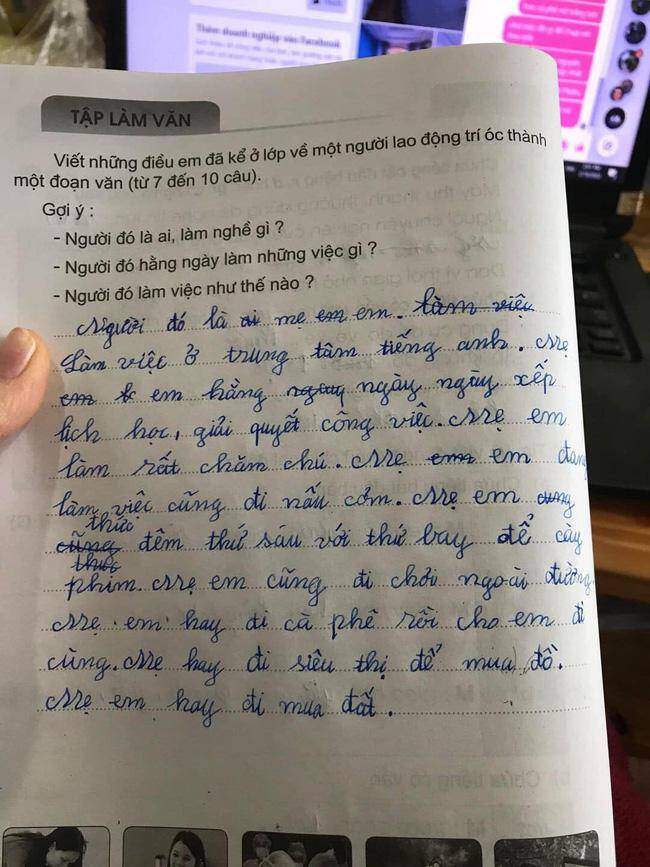 Thêm doanh nghiệp vào Facebook
TẬP LÀM VĂN
Viết những điều em đã kể ở lớp về một người lao động trí óc thành
một đoạn văn (từ 7 đến 10 câu).
Gợi ý :
- Người đó là ai, làm nghề gì ?
- Người đó hằng ngày làm những việc gì ?
- Người đó làm việc như thế nào ?
Người đó là ai mẹ em em. làm việc
Làm việc ở trung tâm tiếng anh. Mẹ
em em hằng ngày ngày ngày xếp
lịch học, giải quyết công việc. Mẹ em
làm rất chăm chú. Mẹ em em đang
làm việc cũng đi nấu cơm. Mẹ em
thức
cũng đêm thứ sáu với thứ bay để cày
thức
phim. Mẹ em cũng đi chơi ngoài đường.
Mẹ em hay đi cà phê rồi cho em đi
cùng. Mẹ hay đi siêu thị để mua đồ.
Mẹ em hay đi mua đất.